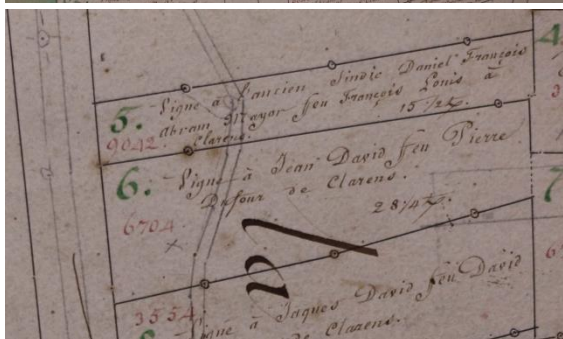 4
5. Vigne à l'ancien Sindic Daniel François
Abram Mayor feu François Louis à
Clarens.
9042.
6. Vigne à Jean David feu Pierre
Dufour de Clarens.
6704
7
3554.
Vigne à Jaques David feu David
de Clarens.